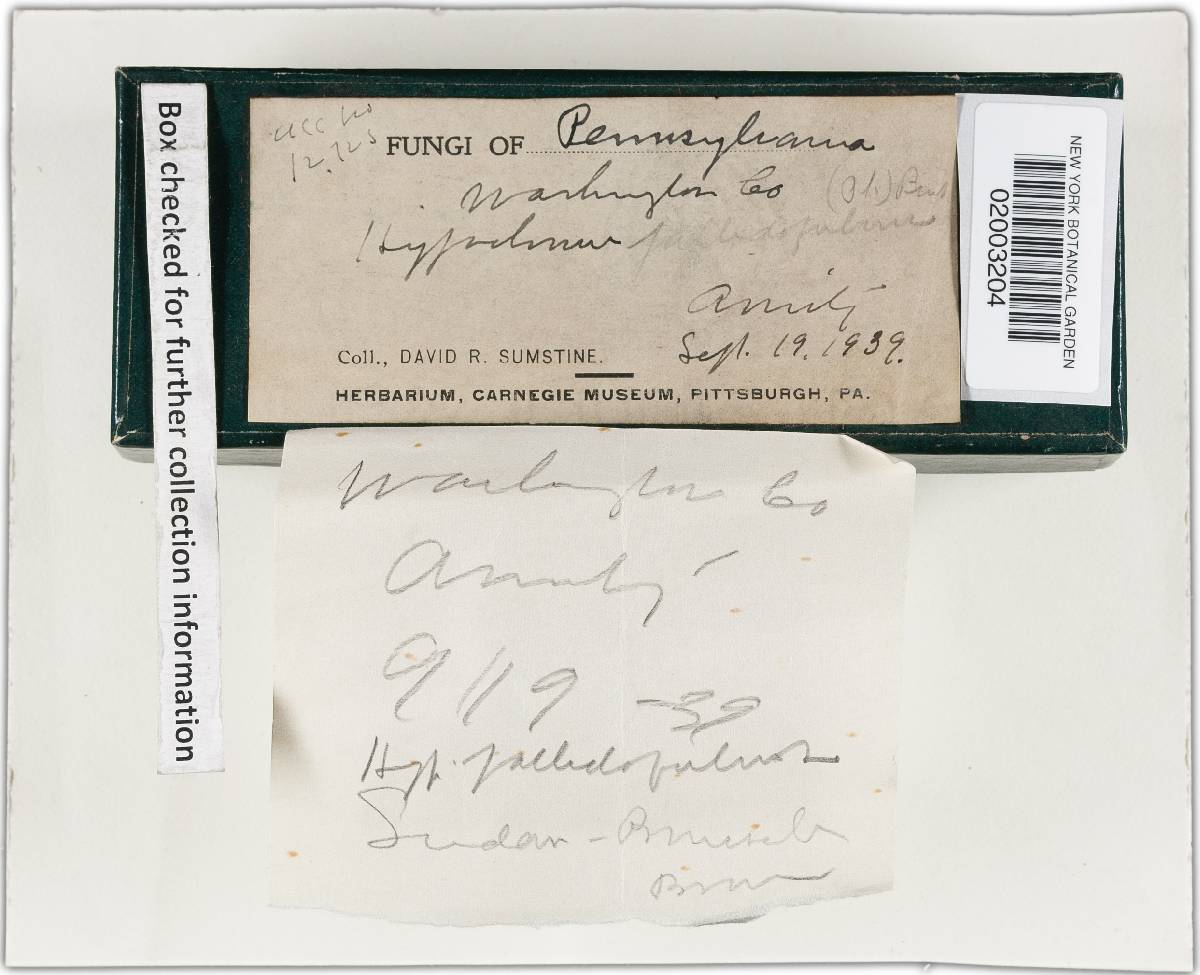 Box checked for further collection information
acc no
12.725
FUNGI OF Pennsylvania
Washington Co
Hypochnus pallidofulvus
Amity
Sept. 19. 1939.
Coll., DAVID R. SUMSTINE.
HERBARIUM, CARNEGIE MUSEUM, PITTSBURGH, PA.
NEW YORK BOTANICAL GARDEN
02003204
Washington Co
Amity
9/19 -39
Hyp. pallidofulvus
Sudan - Brussels
Brown